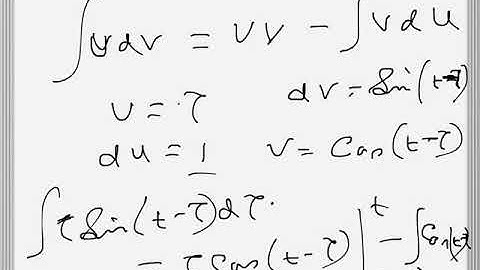 ∫ U dV = UV - ∫ V dU
U = τ    dV = Sin(t-τ)
du = 1    V = Cos(t-τ)
∫ τ Sin(t-τ) dτ.
= τ Cos(t-τ) |^t - ∫ Cos(t-τ)